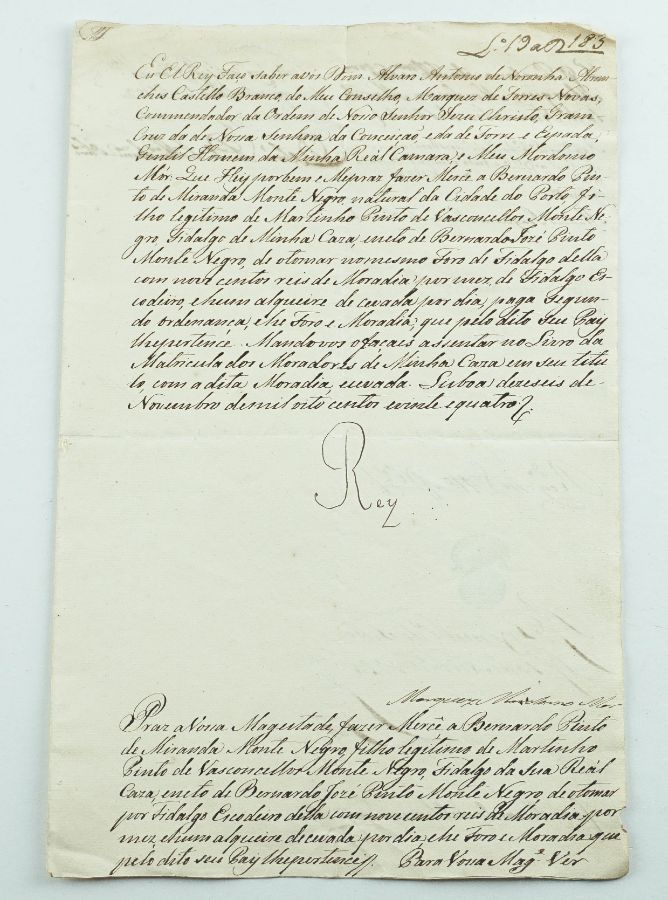 L.º 19 a f 183
Eu El Rey Faço saber a vós Dom Alvaro Antonio de Noronha Abran-
ches Castello Branco, do Meu Conselho, Marquez de Torres Novas,
Commendador da Ordem de Nosso Senhor Jezu Christo, Gram
Cruz da de Nossa Senhora da Conceição, e da de Torre e Espada,
Gentil Homem da Minha Reál Camara, e Meu Mordomo
Mór: Que Hey por bem e Me praz fazer Mercê a Bernardo Pin-
to de Miranda Monte Negro, natural da Cidade do Porto, fi-
lho legitimo de Martinho Pinto de Vasconcellos Monte Ne-
gro, Fidalgo de Minha Caza, e neto de Bernardo José Pinto
Monte Negro, de o tomar no mesmo Foro de Fidalgo della
com nove centos reis de Moradia por mez, de Fidalgo Es-
codeiro, e hum alqueire de cevada por dia, paga segun-
do ordenança, e he Foro e Moradia, que pelo dito seu Pay
lhe pertence. Mandovos o façais assentar no Livro da
Matricula dos Moradores de Minha Caza em seu titu-
lo, com a dita Moradia, e cevada. Lisboa dezeseis de
Novembro de mil oito centos e vinte e quatro
Rey
Marquez Mordomo Mór
Praz a Vossa Magestade, fazer Mercê a Bernardo Pinto
de Miranda Monte Negro, filho legitimo de Martinho
Pinto de Vasconcellos Monte Negro, Fidalgo da Sua Reál
Caza, e neto de Bernardo José Pinto Monte Negro, de o tomar
por Fidalgo Escodeiro della com nove centos reis de Moradia por
mez, e hum alqueire de cevada por dia, e he Foro e Moradia que
pelo dito seu Pay lhe pertence. Para Vossa Mag.e Ver